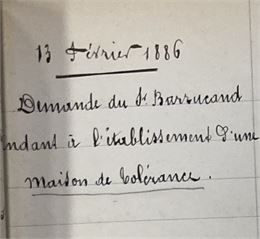 13 Février 1886
Demande du Sr Barrucand
endant à l'établissement d'une
maison de tolérance.